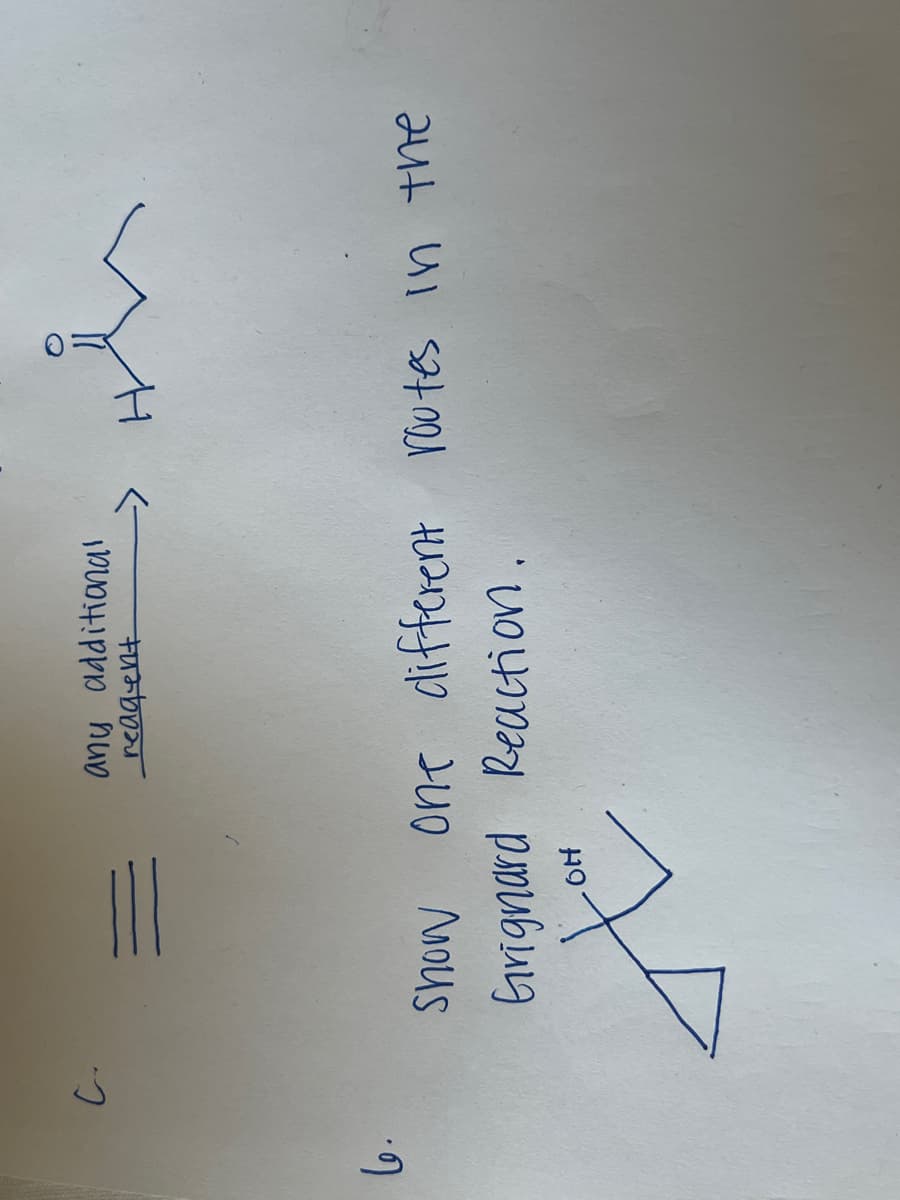 C. any additional
reagent
O
H
6. Show one different routes in the
Grignard Reaction.
OH